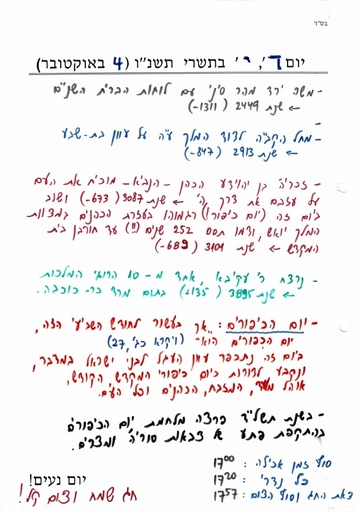 בס"ד
יום ד', י' בתשרי תשנ"ו (4 באוקטובר)
- משה ירד מהר סיני עם לוחות הברית השניים
← שנת 2449 (1311-)
-
- מחל הקב"ה לדוד המלך ע"ה על עוון בת-שבע
← שנת 2913 (847-)
- זכריה בן יהוידע הכהן - הנביא - מוכיח את העם
על עזבם את דרך ה' ← שנת 3087 (673-) ושוב
ביום זה (יום כיפור!) רגמוהו בעזרת הכהנים במצוות
המלך יואש, ודמו תסס 252 שנים (!!) עד חורבן בית
המקדש ← שנת 3101 (689-)
- נרצח ר' עקיבא, אחד מ-10 הרוגי המלכות
← שנת 3895 (135+) בתום מרד בר-כוכבא.
- יום הכיפורים: ..אך בעשור לחודש השביעי הזה,
יום הכיפורים הוא- (ויקרא כג', 27)
ביום זה נתכפר עוון העגל לבני ישראל במדבר,
ונקבע לדורות כיום כיפורי המקדש, הקודש,
אוהל מועד, המזבח, הכהנים וכל העם.
- בשנת תשל"ד פרצה מלחמת יום הכיפורים
בהתקפת פתע של צבאות סוריה ומצרים.
סוף זמן אכילה: 17⁰⁰
כל נדרי: 17²⁰
צאת החג וסוף הצום: 17⁵⁷
יום נעים!
חג שמח וצום קל!